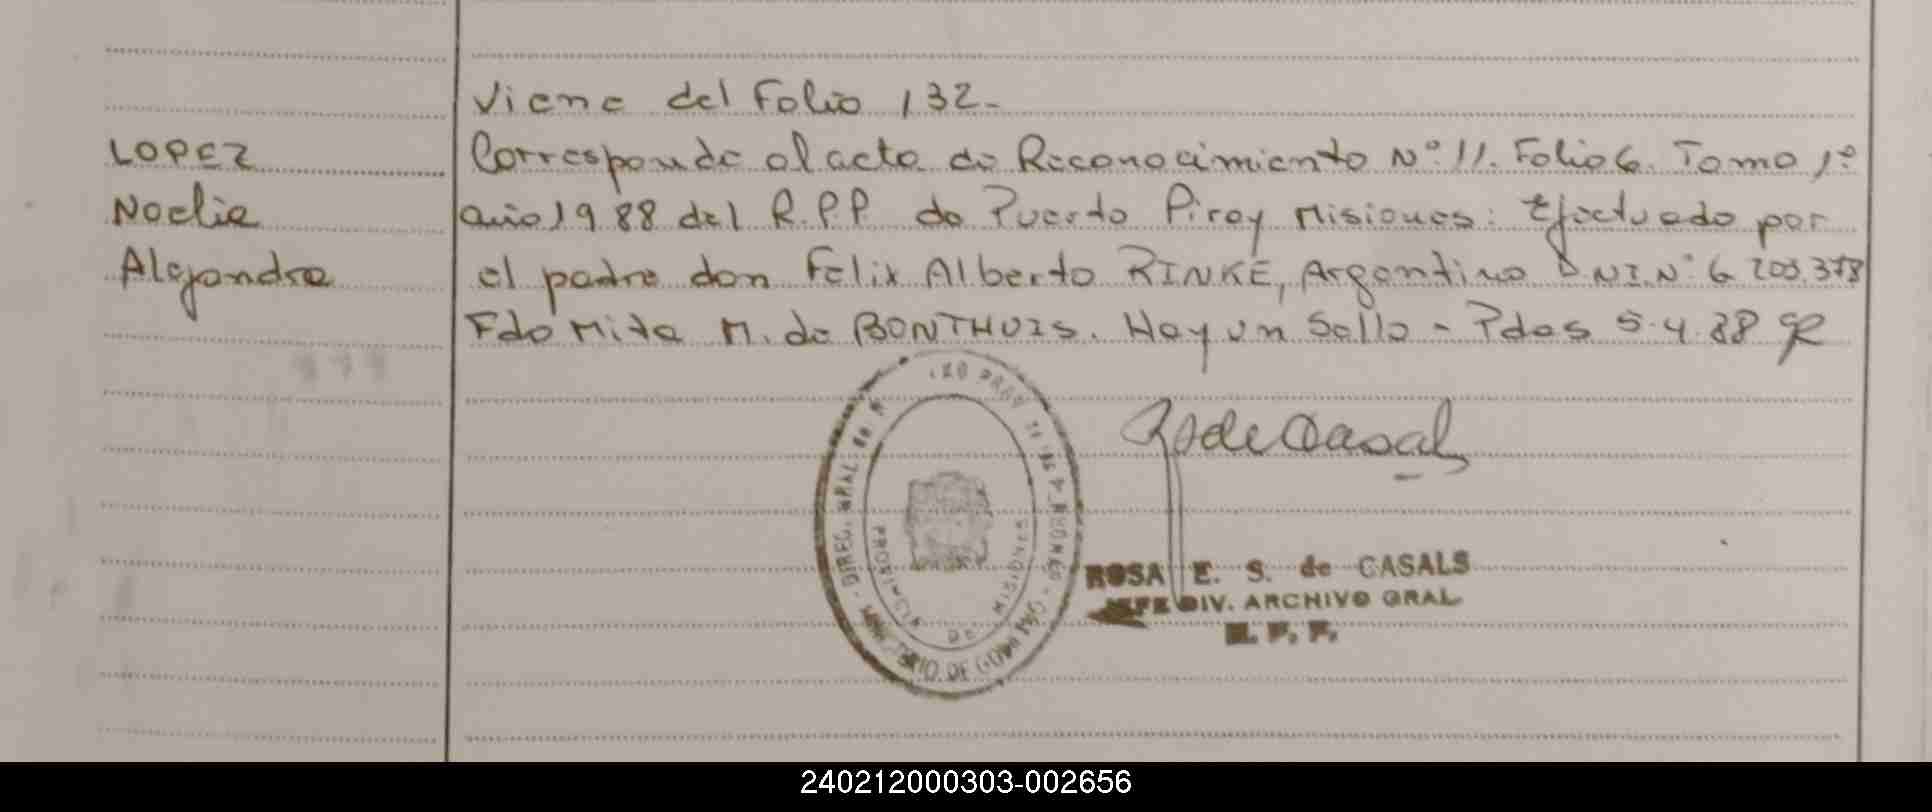 Viene del Folio 132-
LOPEZ
Noelia
Alejandra
Corresponde al acta de Reconocimiento Nº 11. Folio 6. Tomo 1º
año 1988 del R.P.P. de Puerto Piray Misiones: Efectuado por
el padre don Felix Alberto RINKE, Argentino DNI.Nº 6 203.378
Fdo Mita M. de BONTHUIS. Hay un Sello - Pdas 5.4.88
DIREC. GRAL
DE GOB
PROVINCIA
DE MISIONES
R S de Casals
ROSA E. S. de CASALS
JEFE DIV. ARCHIVO GRAL
R. P. P.
240212000303-002656